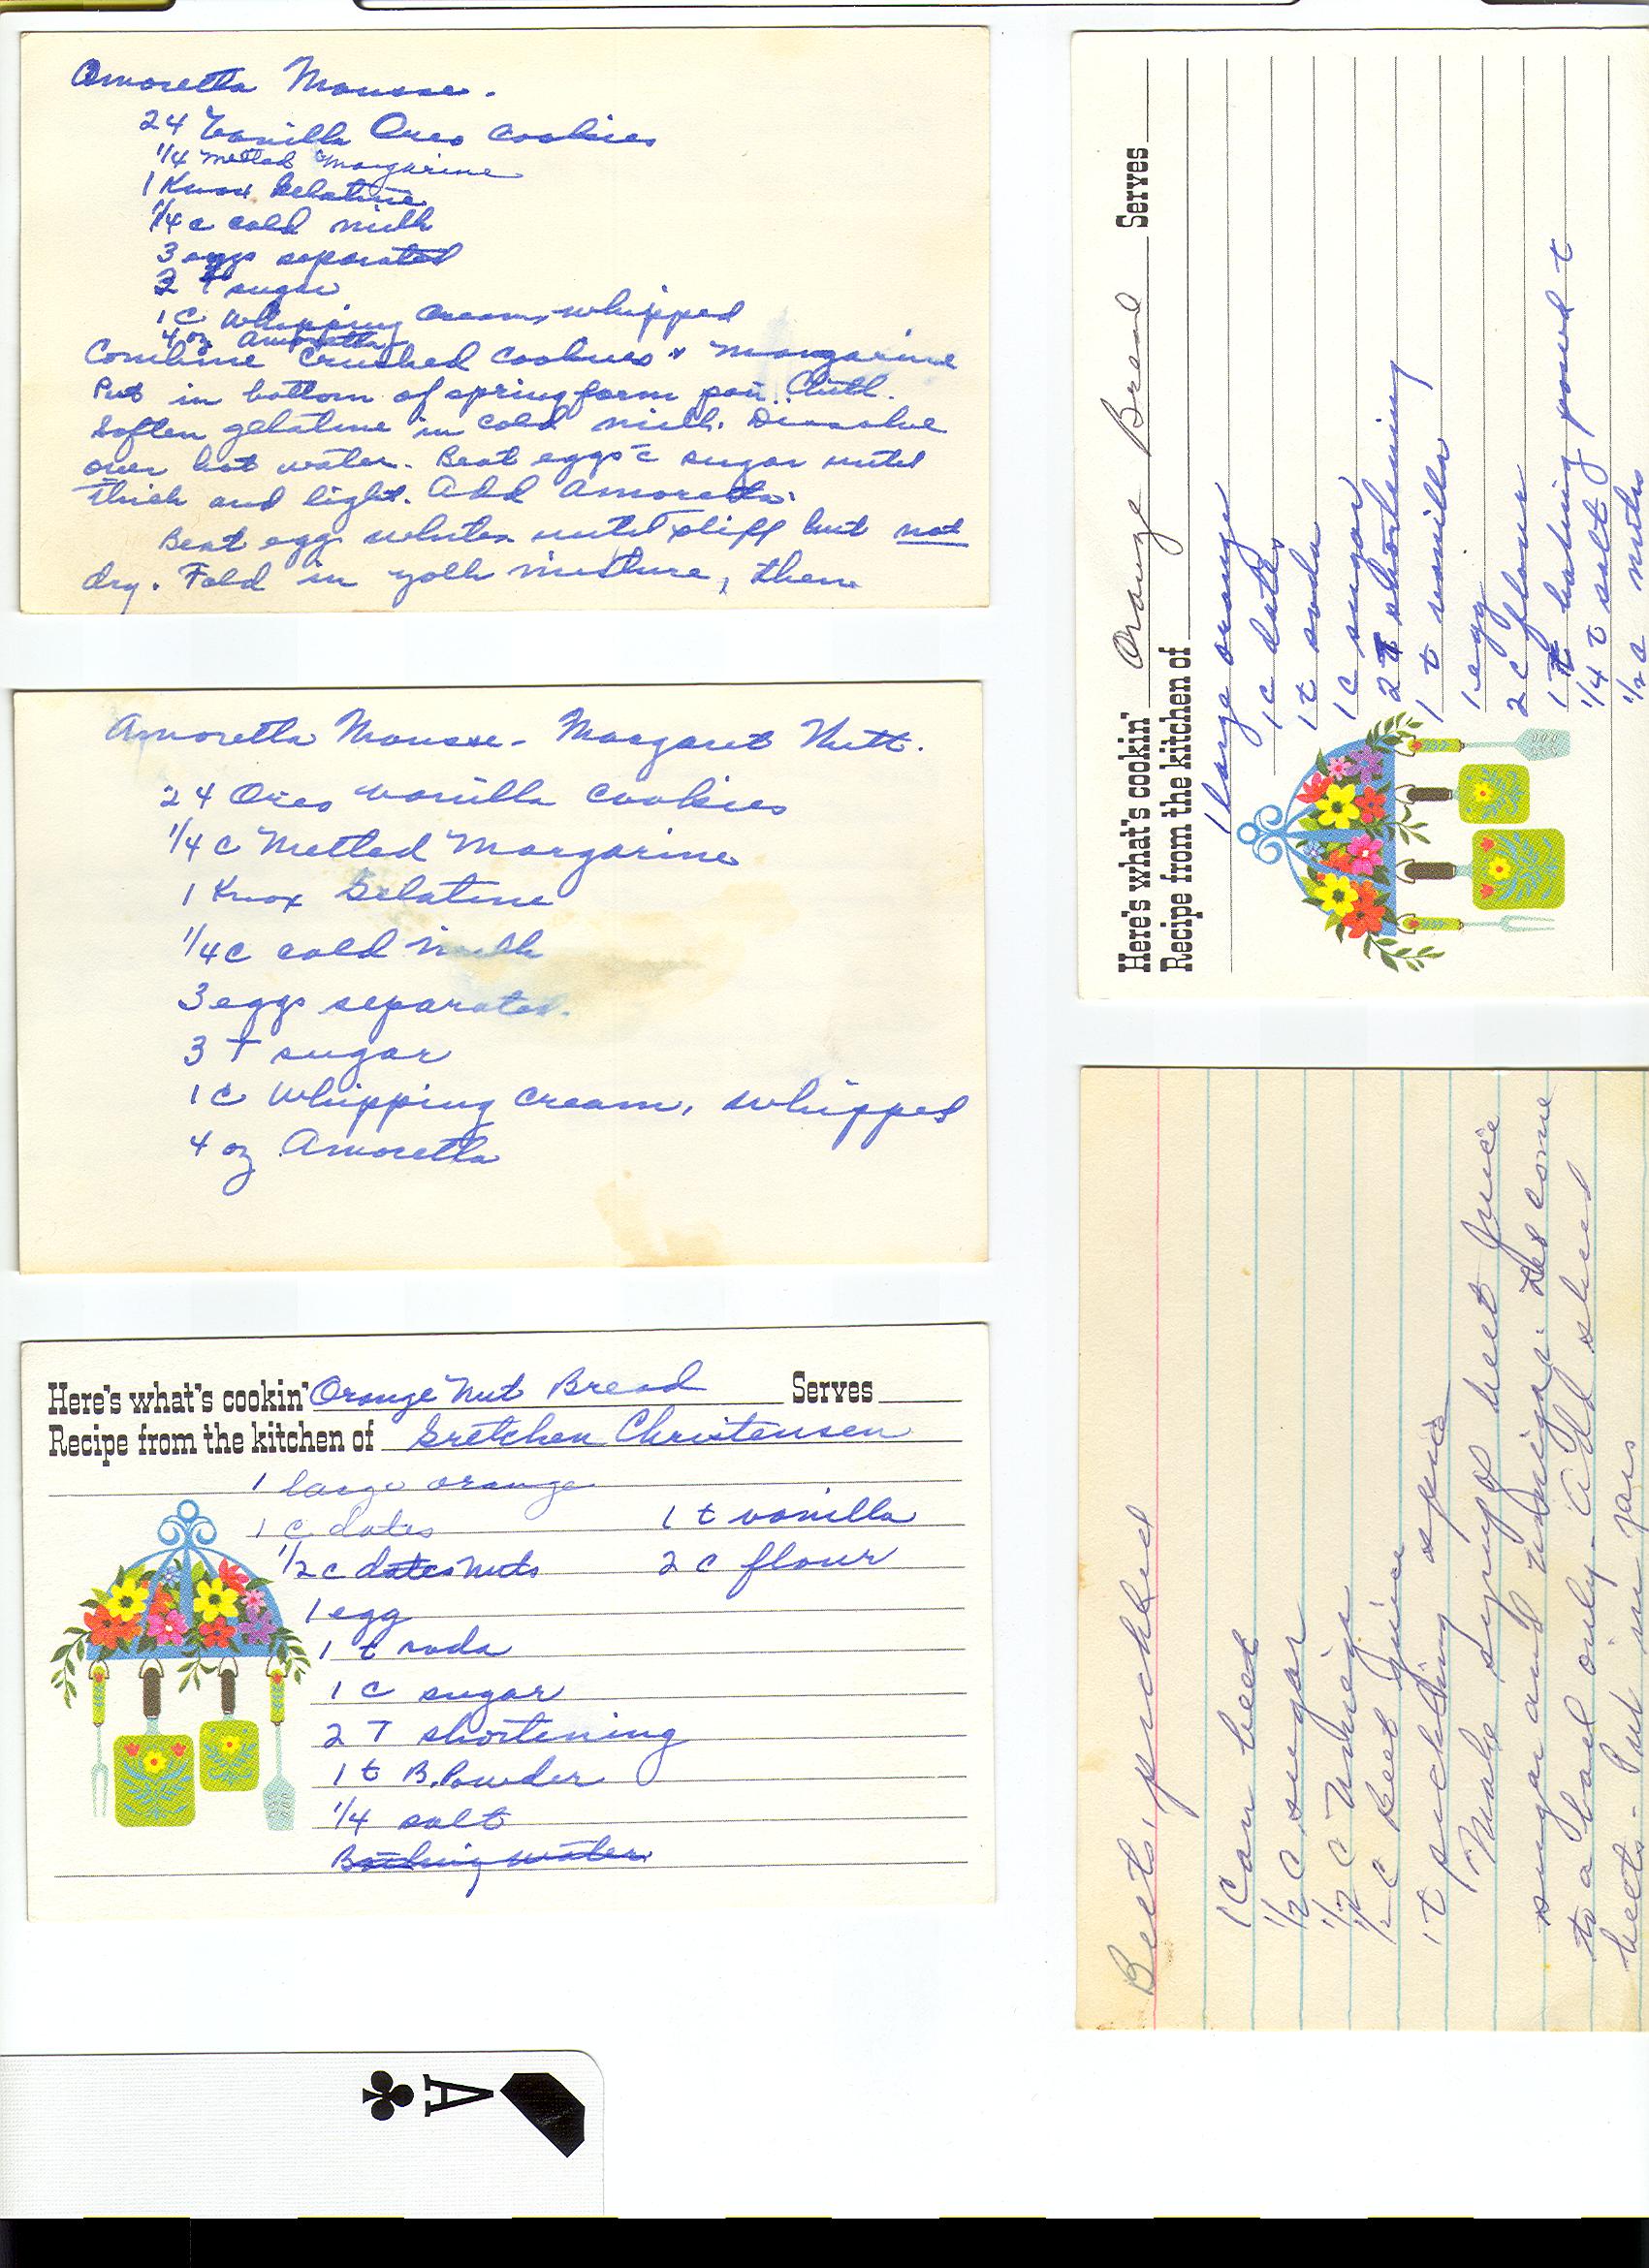 Amoretta Mousse.
24 Vanilla Oreo Cookies
1/4 melted margarine
1 Knox Gelatine
1/4 c cold milk
3 eggs separated
T sugar
1 C Whipping cream, whipped
4 oz Amoretta
Combine crushed cookies & margarine
Put in bottom of springform pan. Chill.
Soften gelatine in cold milk. Dissolve
over hot water. Beat eggs c̄ sugar until
thick and light. Add Amoretta.
Beat egg whites until stiff but not
dry. Fold in yolk mixture, then
Amoretta Mousse - Margaret Nutt.
24 Oreo Vanilla Cookies
1/4 c Melted Margarine
1 Knox Gelatine
1/4 c cold milk
3 eggs separated.
3 T sugar
1 C Whipping Cream, whipped
4 oz Amoretta
Here's what's cookin' Orange Nut Bread Serves
Recipe from the kitchen of Gretchen Christensen
1 large orange
1 c dates 1 t vanilla
1/2 c dates nuts 2 c flour
1 egg
1 t soda
1 C sugar
2 T shortening
1 t B. Powder
1/4 salt
Boiling water
Here's what's cookin' Orange Bread Serves
Recipe from the kitchen of
1 large orange
1 c dates
1 t soda
1 c sugar
2 T shortening
1 t vanilla
1 egg
2 c flour
1 t baking powd
1/4 t salt
1/2 c nuts
Beets, pickled
1 Can beet
1/2 C sugar
1/2 C Vinegar
1/2 C Beet Juice
1 t pickling spice
Make syrup of beet juice
sugar and vinegar. Let come
to a boil only. Add sliced
beets. Put in jars
A